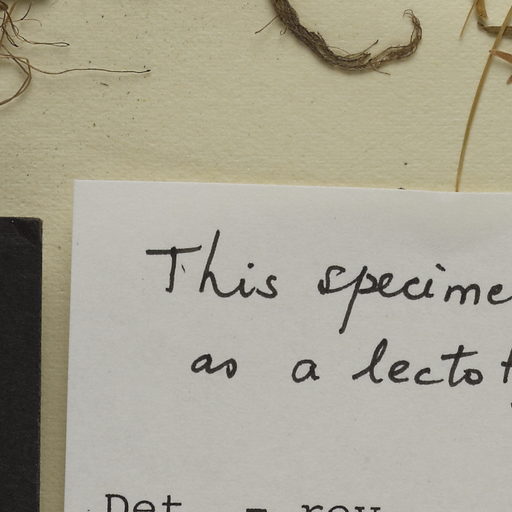 This specime
as a lecto
Det. - rev.